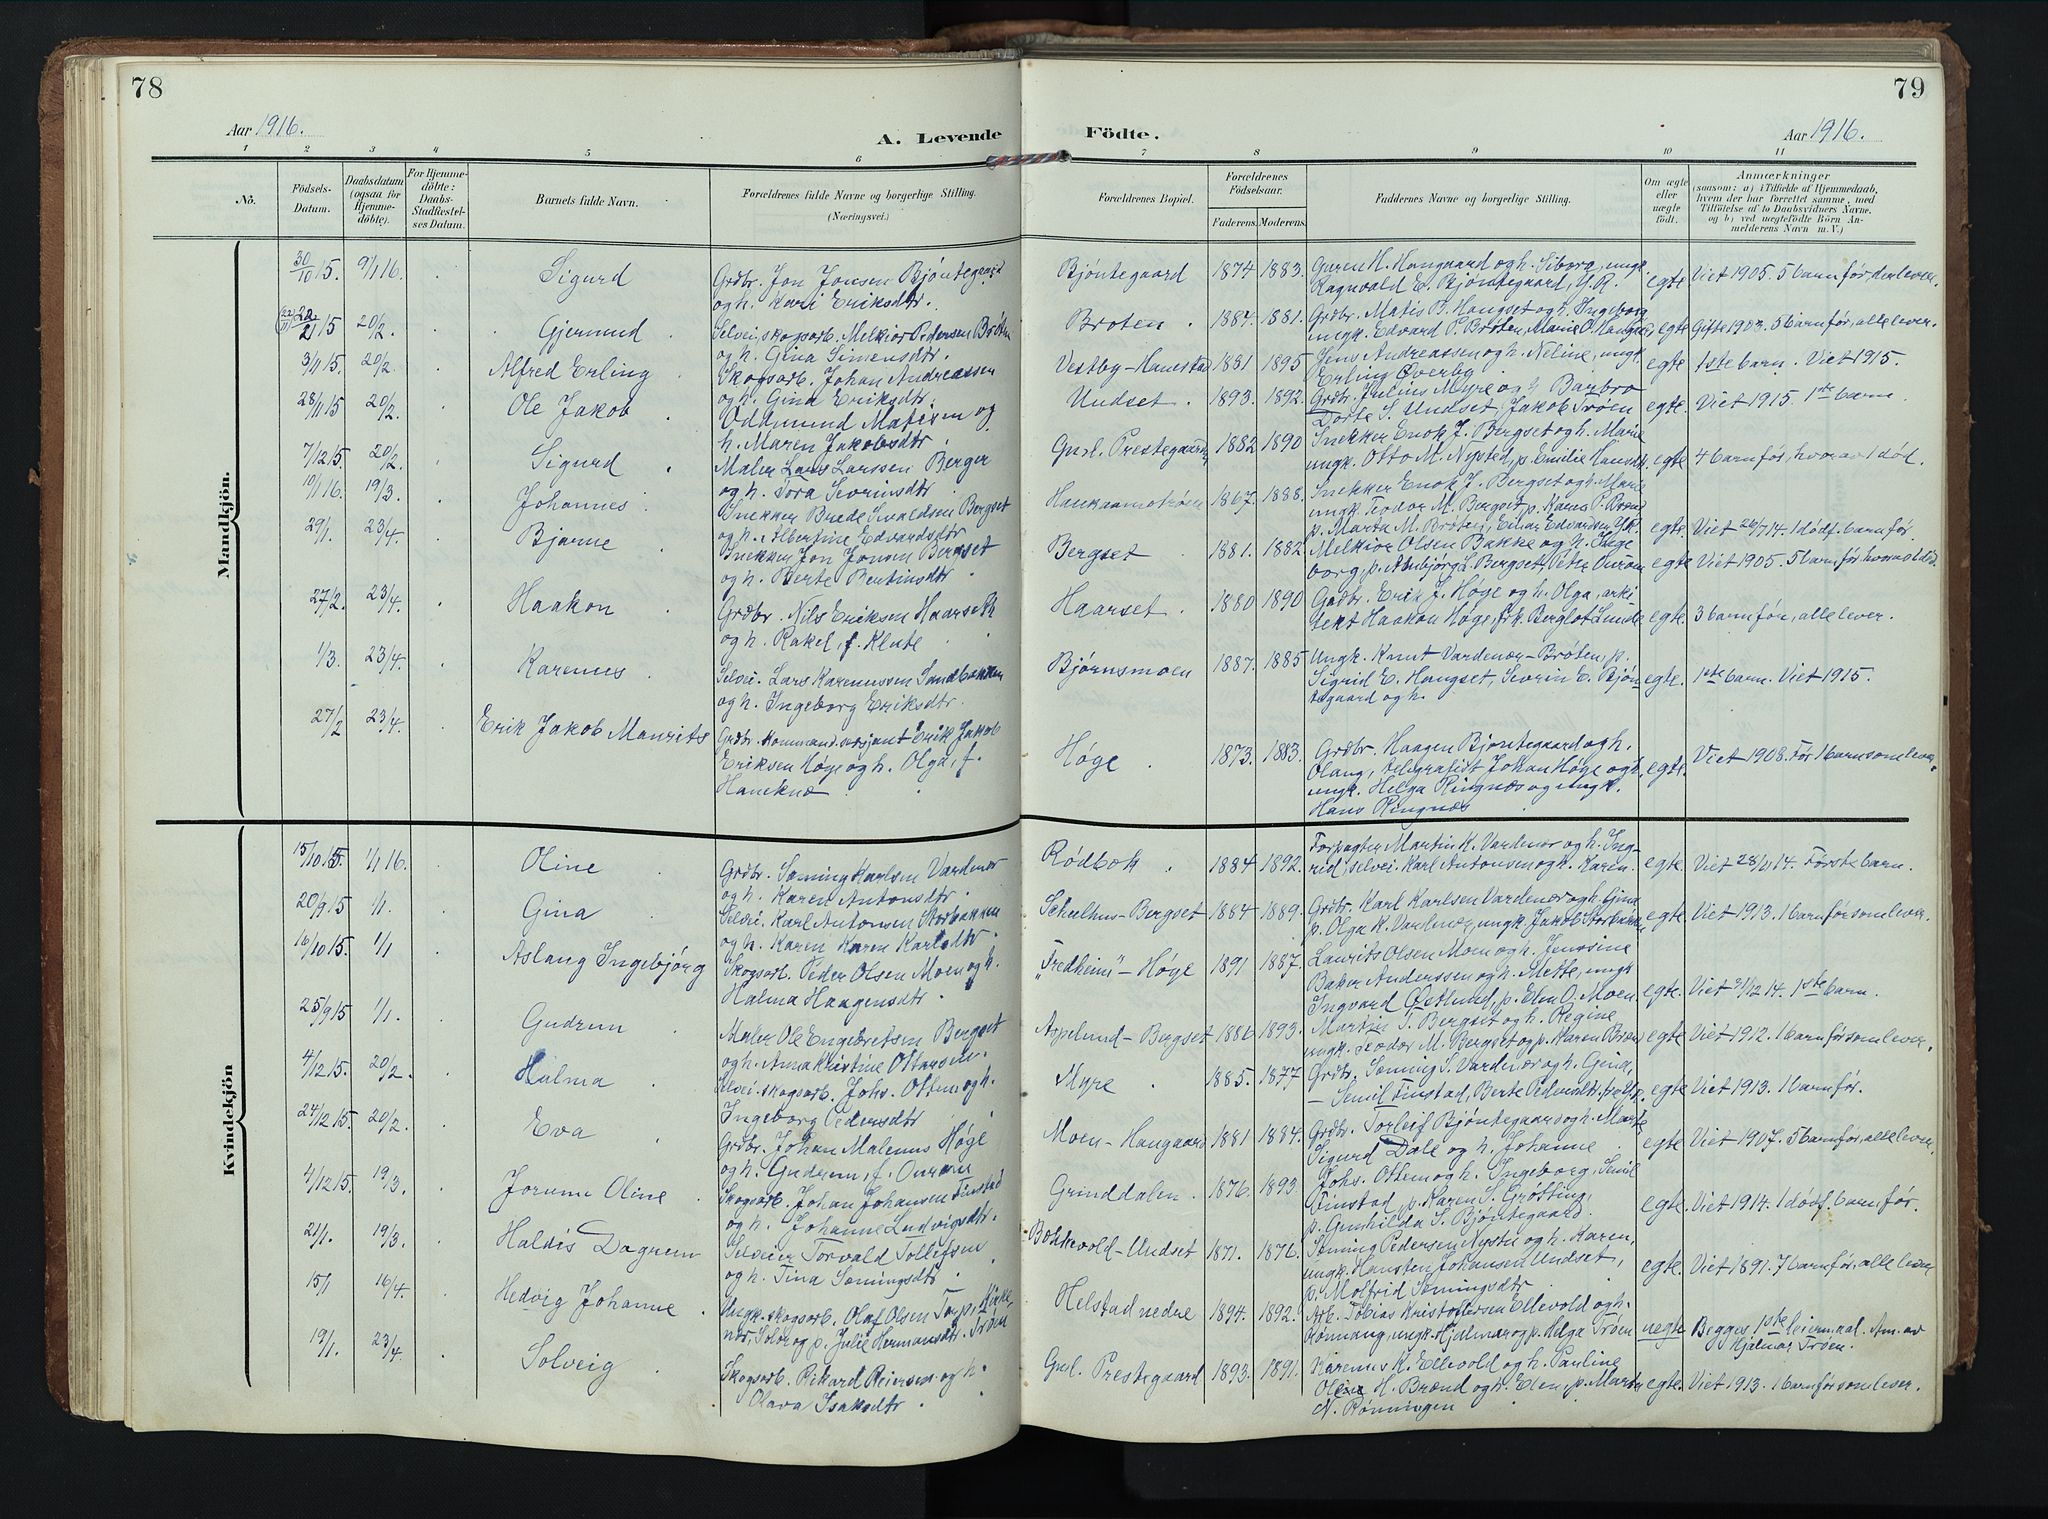 78
79
Aar 1916.
A. Levende
Födte.
Aar 1916.
1 2 3 4 5 6 7 8 9 10 11
No.
Födsels-
Datum.
Daabsdatum
(ogsaa for
Hjemme-
döbte).
For Hjemme-
döbte:
Daabs-
Stadfæstel-
ses Datum.
Barnets fulde Navn.
Forældrenes fulde Navne og borgerlige Stilling.
(Næringsvei.)
Forældrenes Bopæl.
Forældrenes
Födselsaar.
Faderens. Moderens.
Faddernes Navne og borgerlige Stilling.
Om ægte
eller
uægte
födt.
Anmærkninger
(saasom: a) i Tilfælde af Hjemmedaab,
hvem der har forrettet samme, med
Tilföielse af to Daabsvidners Navne,
og b) ved uægtefödte Börn An-
melderens Navn m. V.)
Mandkjön.
30/10 15. 9/1 16. Sigurd
Grdbr. Jon Jonsen Bjöntegaard
og h. Kari Eriksdtr.
Bjöntegaard 1874 1883.
Ragnvald E. Bjöntegaard, G. K.
egte Viet 1905. 5 barn før, den lever.
20/2. Gjermund
Selvei, skogsarb. Melkior Pedersen Bröten
og h. Gina Simensdtr.
Broten. 1884. 1881.
Grdbr. Matis P. Hangset og h. Ingeborg
ungk. Edvard P. Broten, Marie O. Hangset
egte Gifte 1903. 5 barn før, alle lever.
3/11 15. 20/2. Alfred Erling
Skogsarb. Johan Andreassen
og h. Gina Eriksdtr.
Vestby-Hanestad 1881 1895
Jens Andreassen og h. Neline, ungk.
Erling Överby
egte 1ste barn. Viet 1915.
28/11 15 20/2. Ole Jakob
Oddmund Matisen og
h. Maren Jakobsdtr
Undset. 1893. 1892.
Grdbr. Julius Myre og h. Barbro
Dorte S. Undset, Jakob Tröen
egte. Viet 1915 1ste barn
7/12 15. 20/2. Sigurd
Maler Lars Larssen Berger
og h. Tora Sevrinsdtr.
Gml. Prestegaard 1882 1890
Snekker Enok J. Bergset og h. Marie
ungk. Otto M. Nysted, p. Emilie Hansdtr.
egte 4 barn før, hvorav 1 død.
19/1 16. 19/3. Johannes
Snekker Brede Svaldsen Bergset
og h. Albertine Edvardsdtr
1867. 1888.
Snekker Enok J. Bergset og h. Marie
ungk. Teodor M. Bergset, p. Karen P. Brænd
p. Marta M. Bröten, Einar Edvardsen
egte. Viet 26/7 14. 1 dødf. barn før.
29/1. 23/4. Bjarne
Snekker Jon Jonsen Bergset
og h. Berte Bentinsdtr
Bergset 1881. 1882
Melkior Olsen Bakke og h. Inge
borg, p. Anbjörg L. Bergset, Petra
egte Viet 1905. 5 barn før hvorav 1 død.
27/2. 23/4. Haakon
Grdbr. Nils Eriksen Haarseth
og h. Rakel, f. Klute
Haarset. 1880 1890
Grdbr. Erik J. Höge og h. Olga, arki
tekt Haakon Höge, frk. Berglot Lunde
egte. 3 barn før, alle lever.
1/3. 23/4. Karenus
Selvei. Lars Karenussen Sandbakken
og h. Ingeborg Eriksdtr.
Bjørnsmoen 1887. 1885
Ungk. Knut Vardenær-Broten, p.
Sigrid E. Hangset, Sevrin E. Bjön-
tegaard og h.
egte. 1ste barn. Viet 1915.
27/2 23/4. Erik Jakob Maurits
Grdbr. Kommandersersjant Erik Jakob
Eriksen Höge og h. Olga, f.
Haneknæ
Höge. 1873. 1883.
Grdbr. Haagen Bjöntegaard og h.
Olaug, telegrafist Johan Höge og h.
ungk. Helga Ringnæs og ungk.
Hans Ringnæs
egte. Viet 1908. Før 1 barn som lever.
Kvindekjön
15/10 15. 1/1 16. Oline
Grdbr. Sæming Karlsen Vardenær
og h. Karen Antonsdtr
Rödbæk. 1884 1892.
Forpagter Martin K. Vardenær og h. Ing-
rid, selvei. Karl Antonsen og k. Karen
egte. Viet 28/11 14. Første barn.
20/9 15 1/1. Gina
Selvei. Karl Antonsen Storbakken
og h. Karen Karen Karlsdtr.
Schulhus-Bergset 1884 1889.
Grdbr. Karl Karlsen Vardenær og h. Gina
p. Olga K. Vardenær, ungk. Jakob Storbakken
egte Viet 1913. 1 barn før som lever.
16/10 15. 1/1 Aslaug Ingebjörg
Skogsarb. Peder Olsen Moen og h.
Halma Haagensdtr.
"Fredheim" - Höge 1891 1887.
Laurits Olsen Moen og h. Jenssine
Baker Anderssen og h. Mette, ungk.
Ingvard Östlund, p. Elen O. Moen
egte. Viet 31/12 14. 1ste barn.
25/9 15 1/1. Gudrun
Maler Ole Engebretsen Bergset
og h. Anna Kristine Ottarsen.
Appelund-Bergset 1886 1893.
Martin T. Bergset og h. Regine
ungk. Teodor M. Bergset og p. Karen Brænd
egte Viet 1912. 1 barn før som lever.
4/12 15. 20/2. Halma
Selvei. skogsarb. Johs. Ottem og h.
Ingeborg Pedersdtr
Myre 1885. 1877
Grdbr. Sæming S. Vardenær og h. Gina,
- Semil Finstad, Berte Pedersdtr.
egte Viet 1913. 1 barn før.
24/12 15. 20/2. Eva
Grdbr. Johan Malenus Höge
og h. Gudrun, f.
Moen-Haugaard 1881 1884.
Grdbr. Torleif Bjöntegaard og h. Marte
Sigurd Dale og h. Johanne
egte Viet 1907. 5 barn før, alle lever.
4/12 15. 19/3. Jorunn Oline
Skogsarb. Johan Johansen Finstad
og h. Johanne Ludvigsdtr.
Grinddalen. 1876. 1893
Johs. Ottem og h. Ingeborg, Semil
Finstad, p. Karen S. Grötting,
p. Gunhilda S. Bjöntegaard.
egte. Viet 1914. 1 dødf. barn før.
21/1. 19/3. Haldis Dagrun
Selveier Torvald Tollefsen
og h. Tina Sæmingsdtr
Bakkevold-Undset 1871. 1876.
Sæming Pedersen Nystu og h. Karen,
ungk. Hansten Johansen Undset,
p. Molfrid Sæmingsdtr
egte. Viet 1891. 7 barn før, alle lever
15/1 16/4. Hedvig Johanne
Ungk. skogsarb. Olaf Olsen Torp, Kirke-
nær, Solör og p. Julie Hermansdtr. Tröen
Helstad nedre 1894. 1892.
Arb. Tobias Kristoffersen Ellevold og h.
Rönnaug, ungk. Hjalmar og p. Helga Tröen
uegte Begges 1ste leiermaal. Am. av
Hjalmar Tröen.
19/1. 23/4. Solveig
Skogsarb. Rikard Reiersen og h.
Olava Isaksdtr
Gml. Prestegaard 1893. 1891.
Karenus K. Ellevold og h. Pauline
H. Brænd og h. Elen, p. Marte
N. Rönningen
egte. Viet 1913. 1 barn før som lever.